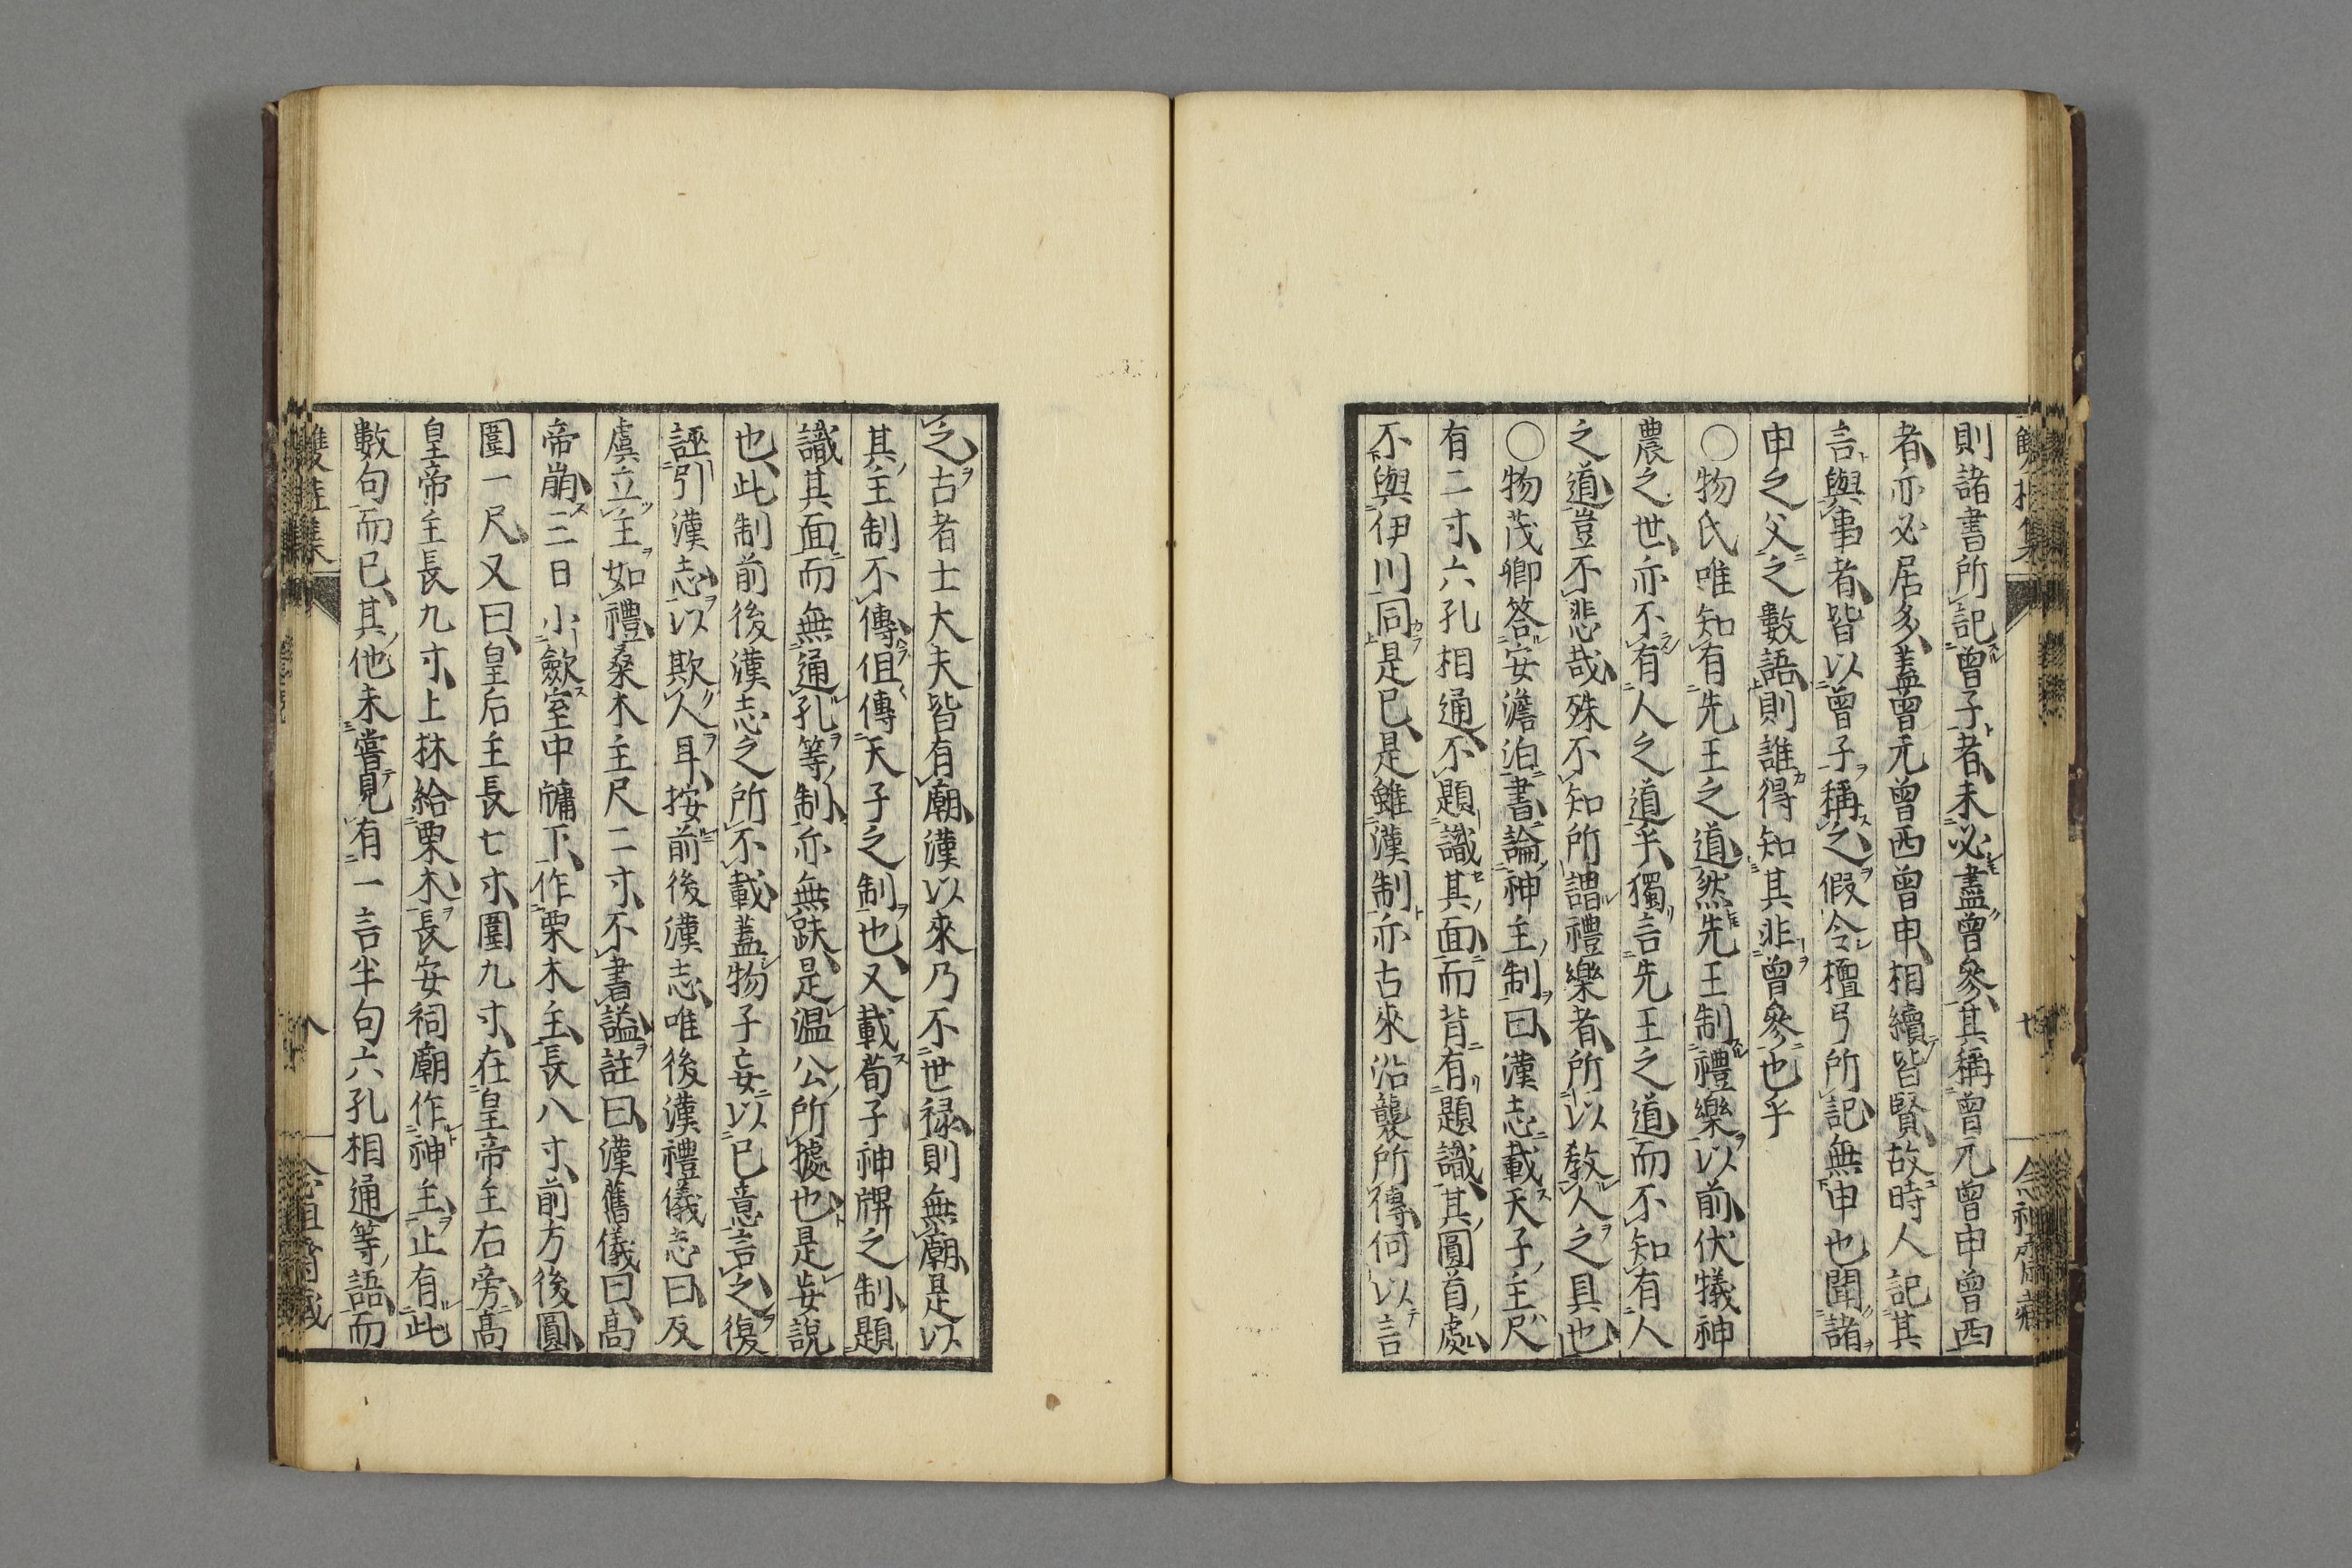 則諸書所記曾子者未必盡曾參其稱曾元曾申曾西
者亦必居多蓋曾元曾西曾申相續皆賢故時人記其
言與事者皆以曾子稱之假令檀弓所記無申也聞諸
申之父之數語則誰得知其非曾參也乎
〇物氏唯知有先王之道然先王制禮樂以前伏犧神
農之世亦不有人之道乎獨言先王之道而不知有人
之道豈不悲哉殊不知所謂禮樂者所以教人之具也
〇物茂卿答安澹泊書論神主制曰漢志載天子主尺
有二寸六孔相通不題識其面而背有題識其圓首處
不與伊川同是已是雖漢制亦古來沿襲所傳何以言
之古者士大夫皆有廟漢以來乃不世祿則無廟是以
其主制不傳但傳天子之制也又載荀子神牌之制題
識其面而無通孔等制亦無趺是温公所據也是妄說
也此制前後漢志之所不載蓋物子妄以已意言之復
誣引漢志以欺人耳按前後漢志唯後漢禮儀志曰反
虞立主如禮桑木主尺二寸不書謚註曰漢舊儀曰高
帝崩三日小歛室中牖下作栗木主長八寸前方後圓
圍一尺又曰皇后主長七寸圍九寸在皇帝主右旁高
皇帝主長九寸上林給栗木長安祠廟作神主止有此
數句而已其他未嘗見有一言半句六孔相通等語而